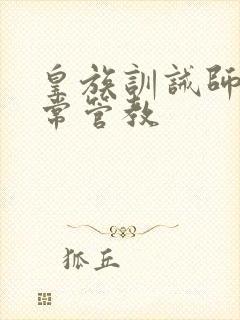 皇族訓誡師
常管教
狐丘